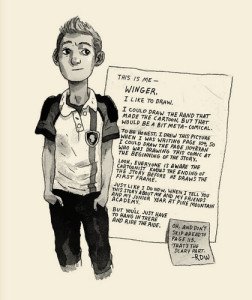 THIS IS ME —
WINGER.
I LIKE TO DRAW.
I COULD DRAW THE HAND THAT
MADE THE CARTOON, BUT THAT
WOULD BE A BIT META-COMICAL.
TO BE HONEST, I DREW THIS PICTURE
WHEN I WAS WRITING PAGE 104, SO
I COULD DRAW THE PAGE
WHO WAS DRAWING THIS COMIC AT
THE BEGINNING OF THE STORY.
LOOK, EVERYONE IS AWARE THE
CARTOONIST KNOWS THE ENDING OF
THE STORY BEFORE HE DRAWS THE
FIRST FRAME.
JUST LIKE I DO NOW, WHEN I TELL YOU
THIS STORY ABOUT ME AND MY FRIENDS
AND MY JUNIOR YEAR AT PINE MOUNTAIN
ACADEMY.
BUT YOU'LL JUST HAVE
TO HANG IN THERE
AND RIDE THE RIDE.
OH, AND DON'T
SKIP AHEAD TO
PAGE
THAT'S THE
SCARY PART.
—RDW